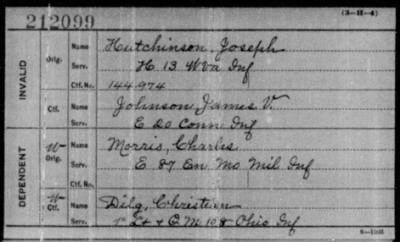 212099
(3-H-4)
INVALID
Orig. Name Hutchinson, Joseph
Serv. H 13 W Va Inf
Ctf. No. 144.974
Ctf. Name Johnson, James V.
Serv. E 20 Conn Inf
DEPENDENT
W- Orig. Name Morris, Charles
Serv. E 87 En Mo Mil Inf
Ctf. No.
W Ctf. Name Dilg, Christian
Serv. 1" Lt & Q.M. 108 Ohio Inf